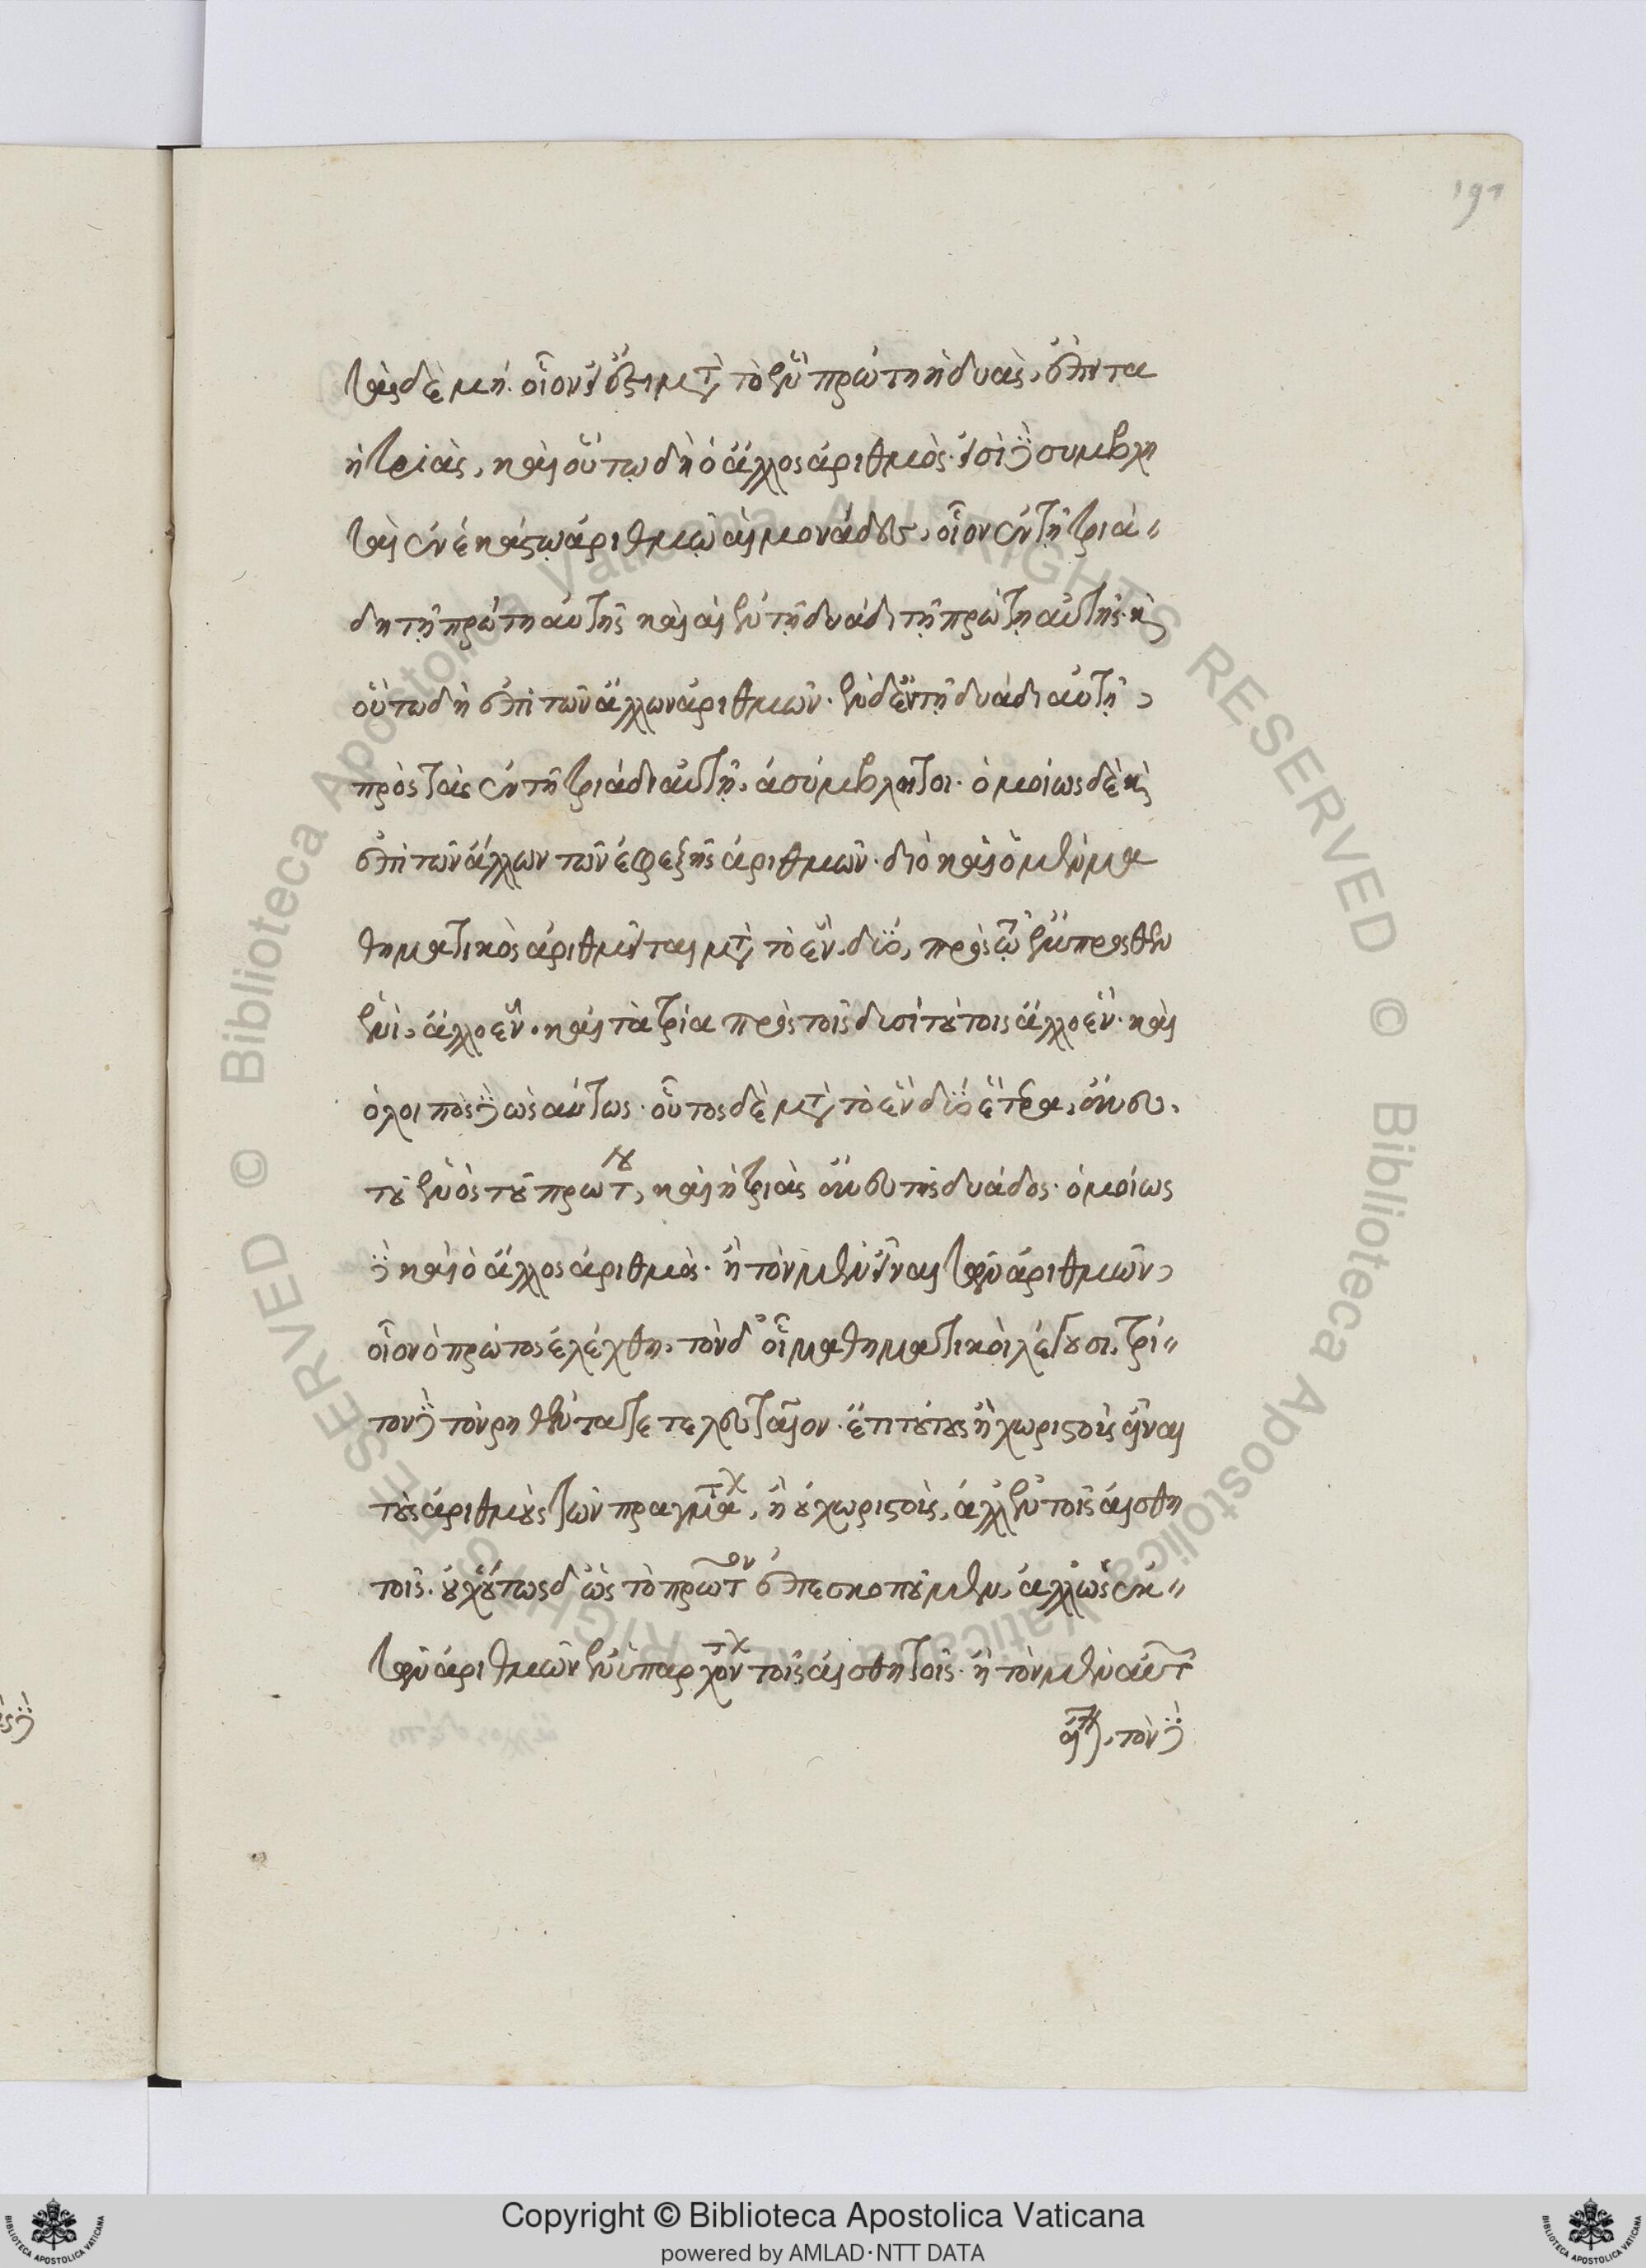 191
τὰς δὲ μή. οἷον εἰ ἔστι μετὰ τὸ ἓν πρώτη ἡ δυὰς, ἔπειτα
ἡ τριὰς, καὶ οὕτω δὴ ὁ ἄλλος ἀριθμὸς. εἰσὶ δὲ συμβλη
ταὶ ἐν ἑκάστῳ ἀριθμῷ αἱ μονάδες, οἷον ἐν τῇ τριά〃
δη τῇ πρώτη αὐτῆς καὶ αἱ ἐν τῇ δυάδι τῇ πρώτῃ αὐτῆς. καὶ
οὕτω δὴ ἐπὶ τῶν ἄλλων ἀριθμῶν. ἐν δὲ τῇ δυάδι αὐτῇ,
πρὸς τὰς ἐν τῇ τριάδι αὐτῇ, ἀσύμβλητοι. ὁμοίως δὲ καὶ
ἐπὶ τῶν ἄλλων τῶν ἐφεξῆς ἀριθμῶν. διὸ καὶ ὁ μὲν μα
θηματικὸς ἀριθμεῖται μετὰ τὸ ἓν, δύο, πρὸς τῷ ἔμπροσθεν
ἑνὶ, ἄλλο ἕν. καὶ τὰ τρία πρὸς τοῖς δυσὶ τούτοις ἄλλο ἕν. καὶ
ὁ λοιπὸς δὲ ὡς αύτως. οὗτος δὲ μετὰ τὸ ἓν δύο ἕτερα, ἄνευ
τοῦ ἑνὸς τοῦ πρώτου, καὶ ἡ τριὰς ἄνευ τῆς δυάδος. ὁμοίως
δὲ καὶ ὁ ἄλλος ἀριθμὸς. ἢ τὸν μὲν εἶναι τῶν ἀριθμῶν,
οἷον ὁ πρῶτος ἐλέχθη, τὸν δ' οἷ μαθηματικοὶ λέγουσι, τρί〃
τον δὲ τὸν ῥηθέντα τε τελευταῖον. ἔτι τούτους ἢ χωριστοὺς εἶναι
τοὺς ἀριθμοὺς τῶν πραγμάτων, ἢ οὐ χωριστοὺς, ἀλλ' ἐν τοῖς αἰσθη
τοῖς. οὐχ οὕτως δ' ὡς τὸ πρῶτον ἐπεσκοποῦμεν, ἀλλ' ὡς ἐκ〃
τῶν ἀριθμῶν ἐνυπαρχόντων τοῖς αἰσθητοῖς. ἢ τὸν μὲν αὐτῶν
εἶναι, τὸν δὲ
Copyright © Biblioteca Apostolica Vaticana
powered by AMLAD·NTT DATA